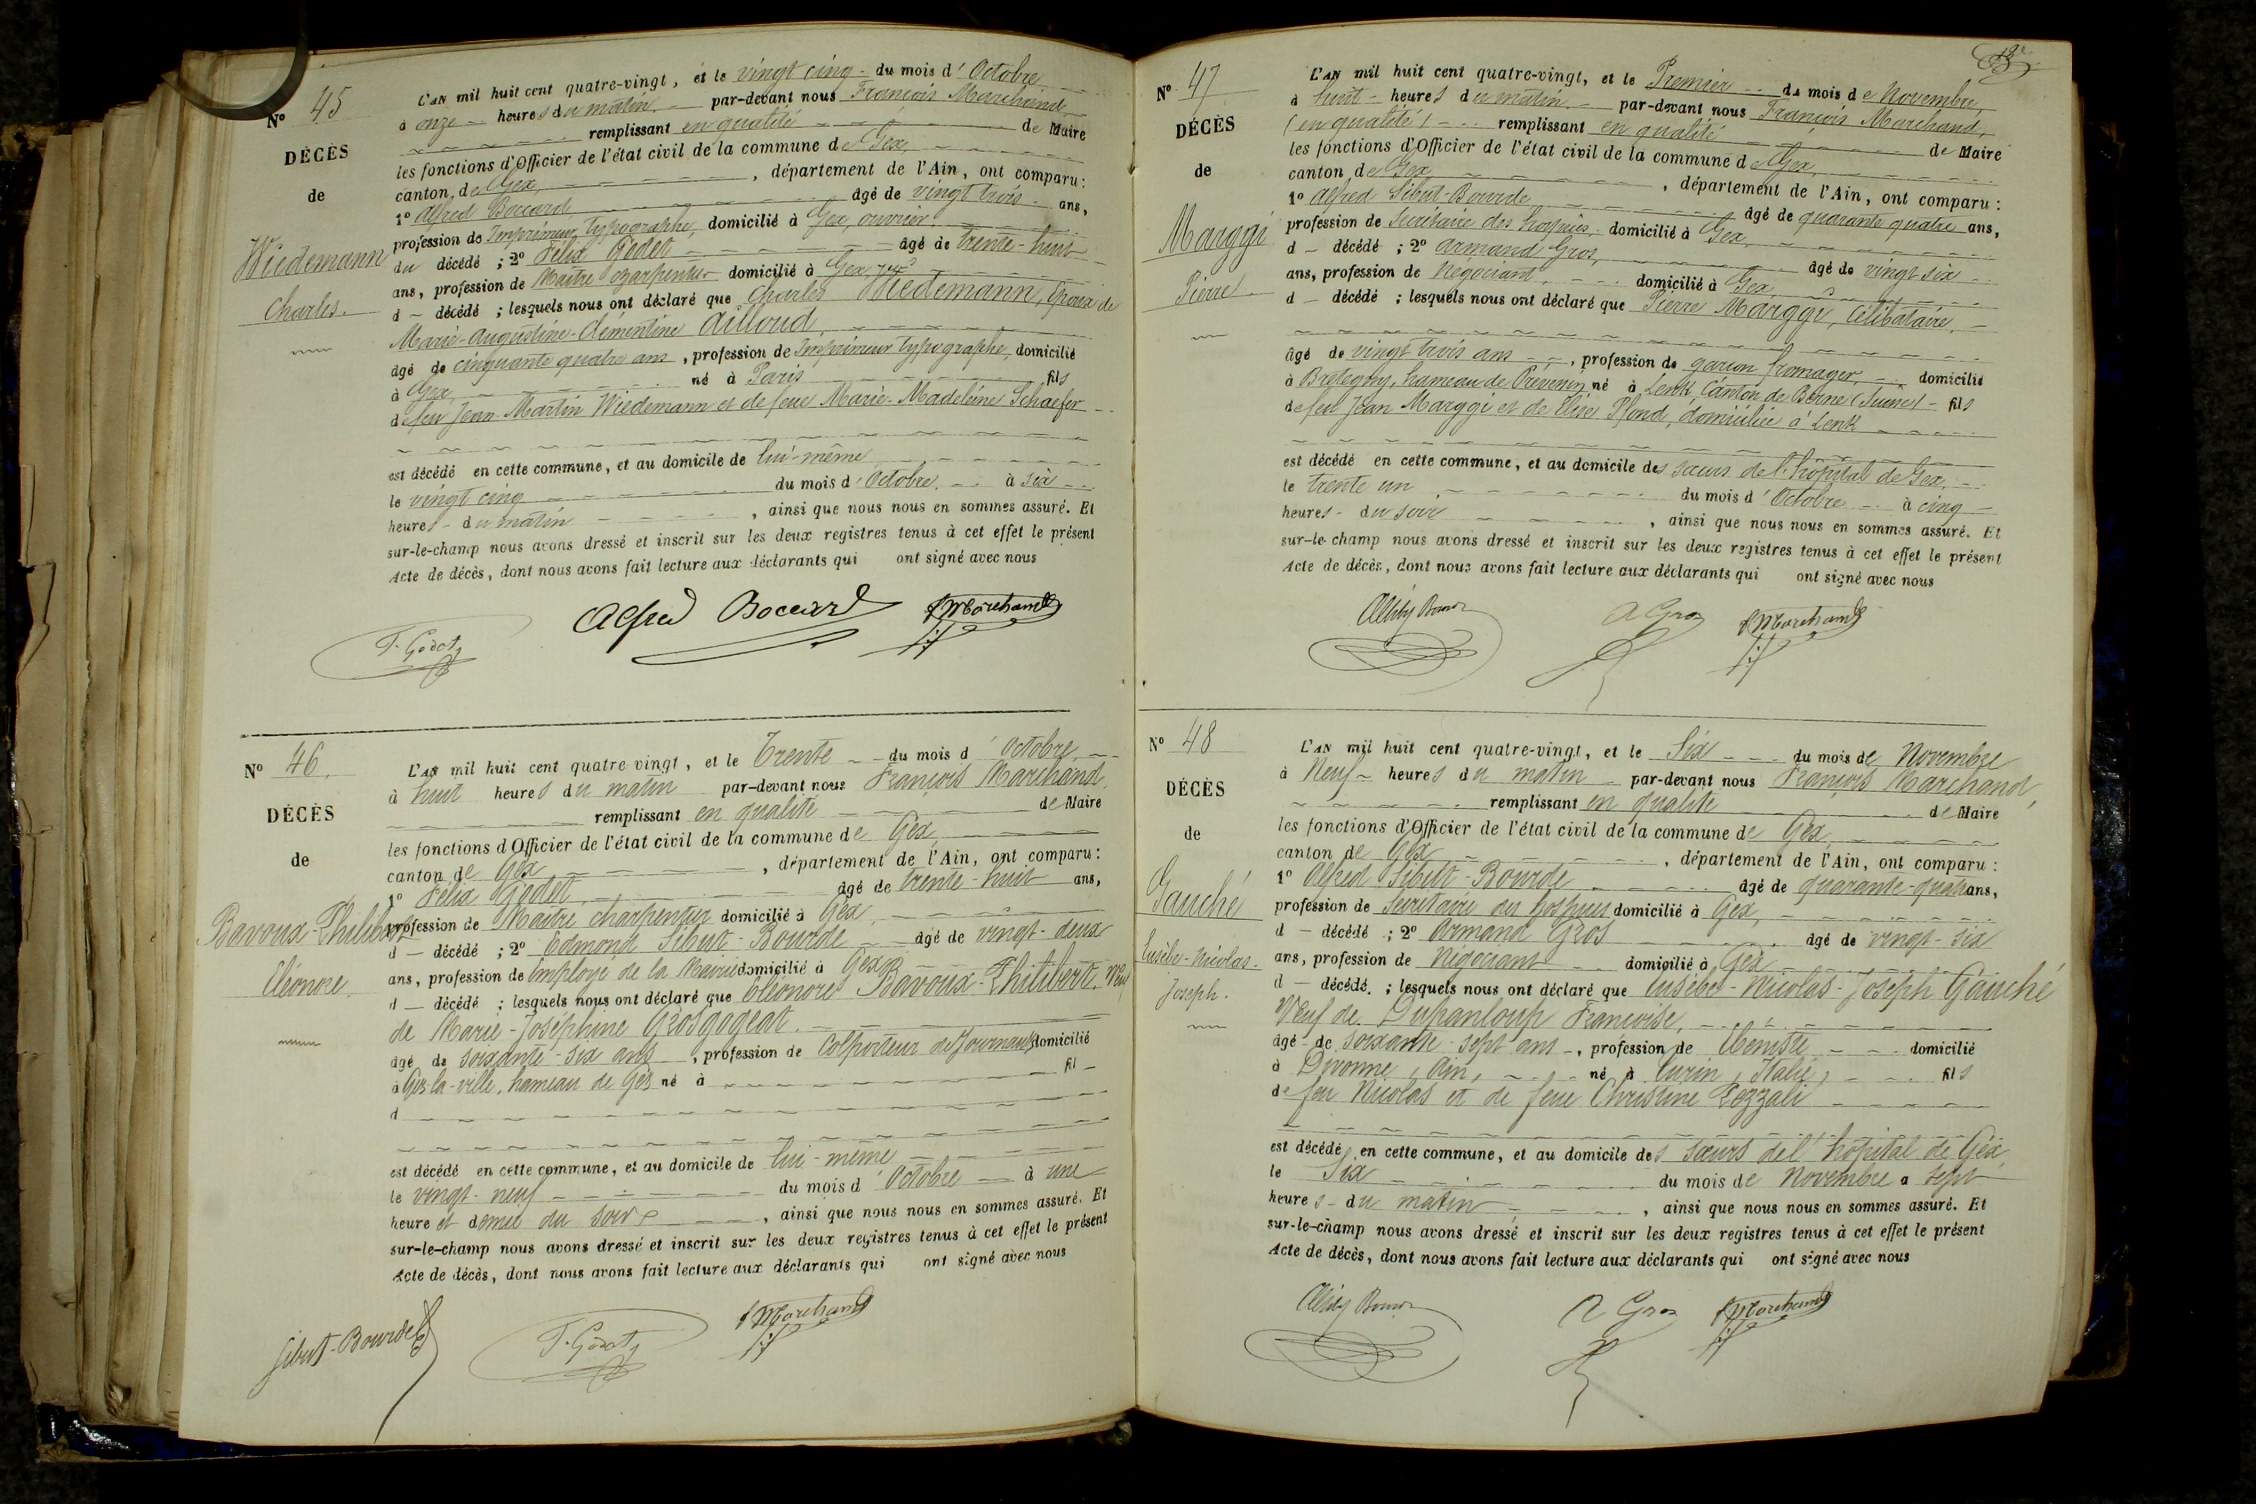 Nº 45
DÉCÈS
de
Wiedemann
Charles.
L'AN mil huit cent quatre-vingt, et le vingt cinq du mois d'Octobre
à onze heures du matin par-devant nous François Marchand,
remplissant en qualité de Maire
les fonctions d'Officier de l'état civil de la commune de Gex,
canton de Gex, département de l'Ain, ont comparu:
1º Alfred Boccard âgé de vingt trois ans,
profession de Imprimeur typographe, domicilié à Gex, ouvrier
du décédé ; 2º Félix Godet âgé de trente-huit
ans, profession de Maître charpentier domicilié à Gex
d décédé ; lesquels nous ont déclaré que Charles Wiedemann, Epoux de
Marie-Augustine-Clémentine Ailloud,
âgé de cinquante quatre ans, profession de Imprimeur typographe, domicilié
à Gex, né à Paris fils
de feu Jean-Martin Wiedemann et de feue Marie-Madeleine Schaefer
est décédé en cette commune, et au domicile de lui-même
le vingt cinq du mois d'Octobre à six
heures du matin, ainsi que nous nous en sommes assuré. Et
sur-le-champ nous avons dressé et inscrit sur les deux registres tenus à cet effet le présent
Acte de décès, dont nous avons fait lecture aux déclarants qui ont signé avec nous
F. Godet Alfred Boccard f Marchand
Nº 46.
DÉCÈS
de
Bavoux-Philibert
Eléonore.
L'AN mil huit cent quatre vingt, et le Trente du mois d'Octobre
à huit heures du matin par-devant nous François Marchand,
remplissant en qualité de Maire
les fonctions d'Officier de l'état civil de la commune de Gex,
canton de Gex, département de l'Ain, ont comparu:
1º Félix Godet âgé de trente-huit ans,
profession de Maître charpentier domicilié à Gex,
d décédé ; 2º Edmond Sibut-Bourde âgé de vingt-deux
ans, profession de Employé de la Mairie domicilié à Gex
d décédé ; lesquels nous ont déclaré que Eléonore Bavoux-Philibert, Veuf
de Marie-Joséphine Grosgogeat.
âgé de soixante-six ans, profession de Colporteur de Journaux domicilié
à Gex-la-ville, hameau de Gex né à fil
d
est décédé en cette commune, et au domicile de lui-même
le vingt-neuf du mois d'Octobre à une
heure et demie du soir, ainsi que nous nous en sommes assuré. Et
sur-le-champ nous avons dressé et inscrit sur les deux registres tenus à cet effet le présent
Acte de décès, dont nous avons fait lecture aux déclarants qui ont signé avec nous
Sibut-Bourde F. Godet f Marchand
Nº 47
DÉCÈS
de
Marggi
Pierre
L'AN mil huit cent quatre-vingt, et le Premier du mois de Novembre,
à huit heures du matin par-devant nous François Marchand,
(en qualité) remplissant en qualité de Maire
les fonctions d'Officier de l'état civil de la commune de Gex,
canton de Gex, département de l'Ain, ont comparu:
1º Alfred Sibut-Bourde âgé de quarante quatre ans,
profession de Secrétaire des hospices domicilié à Gex,
d décédé ; 2º Armand Gros, âgé de vingt six
ans, profession de Négociant, domicilié à Gex,
d décédé ; lesquels nous ont déclaré que Pierre Marggi, Célibataire,
âgé de vingt trois ans, profession de garçon fromager, domicilié
à Brétegny, hameau de Prévessin, né à Lenk, Canton de Berne (Suisse) fils
de feu Jean Marggi et de Elise Plond, domiciliée à Lenk
est décédé en cette commune, et au domicile des sœurs de l'hôpital de Gex,
le trente un du mois d'Octobre à cinq
heures du soir, ainsi que nous nous en sommes assuré. Et
sur-le-champ nous avons dressé et inscrit sur les deux registres tenus à cet effet le présent
Acte de décès, dont nous avons fait lecture aux déclarants qui ont signé avec nous
A Gros f Marchand
Nº 48
DÉCÈS
de
Gauché
Eusèbe-Nicolas-
Joseph.
L'AN mil huit cent quatre-vingt, et le Six du mois de Novembre
à Neuf heures du matin par-devant nous François Marchand,
remplissant en qualité de Maire
les fonctions d'Officier de l'état civil de la commune de Gex,
canton de Gex, département de l'Ain, ont comparu:
1º Alfred Sibut-Bourde âgé de quarante-quatre ans,
profession de Secrétaire des hospices domicilié à Gex,
d décédé ; 2º Armand Gros âgé de vingt-six
ans, profession de Négociant domicilié à Gex
d décédé. ; lesquels nous ont déclaré que Eusèbe-Nicolas-Joseph Gauché
Veuf de Dupanloup Françoise,
âgé de soixante-sept ans, profession de Ebéniste domicilié
à Divonne, Ain, né à Turin, Italie, fils
de feu Nicolas et de feue Christine Pozzali
est décédé en cette commune, et au domicile des sœurs de l'hôpital de Gex,
le Six du mois de Novembre à sept
heures du matin, ainsi que nous nous en sommes assuré. Et
sur-le-champ nous avons dressé et inscrit sur les deux registres tenus à cet effet le présent
Acte de décès, dont nous avons fait lecture aux déclarants qui ont signé avec nous
A Gros f Marchand